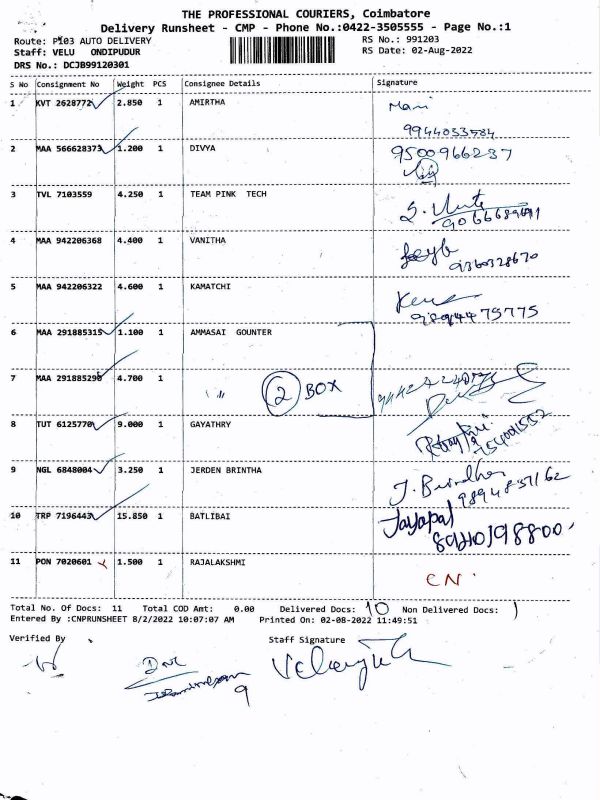 THE PROFESSIONAL COURIERS, Coimbatore
Delivery Runsheet - CMP - Phone No.:0422-3505555 - Page No.:1
Route: P103 AUTO DELIVERY RS No.: 991203
Staff: VELU ONDIPUDUR RS Date: 02-Aug-2022
DRS No.: DCJB99120301
S No Consignment No Weight PCS Consignee Details Signature
1 KVT 2628772 2.850 1 AMIRTHA Mani
9944033584
2 MAA 566628373 1.200 1 DIVYA 9500966237
3 TVL 7103559 4.250 1 TEAM PINK TECH
4 MAA 942206368 4.400 1 VANITHA
9360328670
5 MAA 942206322 4.600 1 KAMATCHI
9894475775
6 MAA 291885315 1.100 1 AMMASAI GOUNTER
7 MAA 291885290 4.700 1 " 2 BOX
8 TUT 6125770 9.000 1 GAYATHRY
9 NGL 6848004 3.250 1 JERDEN BRINTHA J. Brindha
9894857162
10 TRP 7196443 15.850 1 BATLIBAI Jayapal
11 PON 7020601 1.500 1 RAJALAKSHMI CN.
Total No. Of Docs: 11 Total COD Amt: 0.00 Delivered Docs: 10 Non Delivered Docs: 1
Entered By :CNPRUNSHEET 8/2/2022 10:07:07 AM Printed On: 02-08-2022 11:49:51
Verified By Staff Signature
9